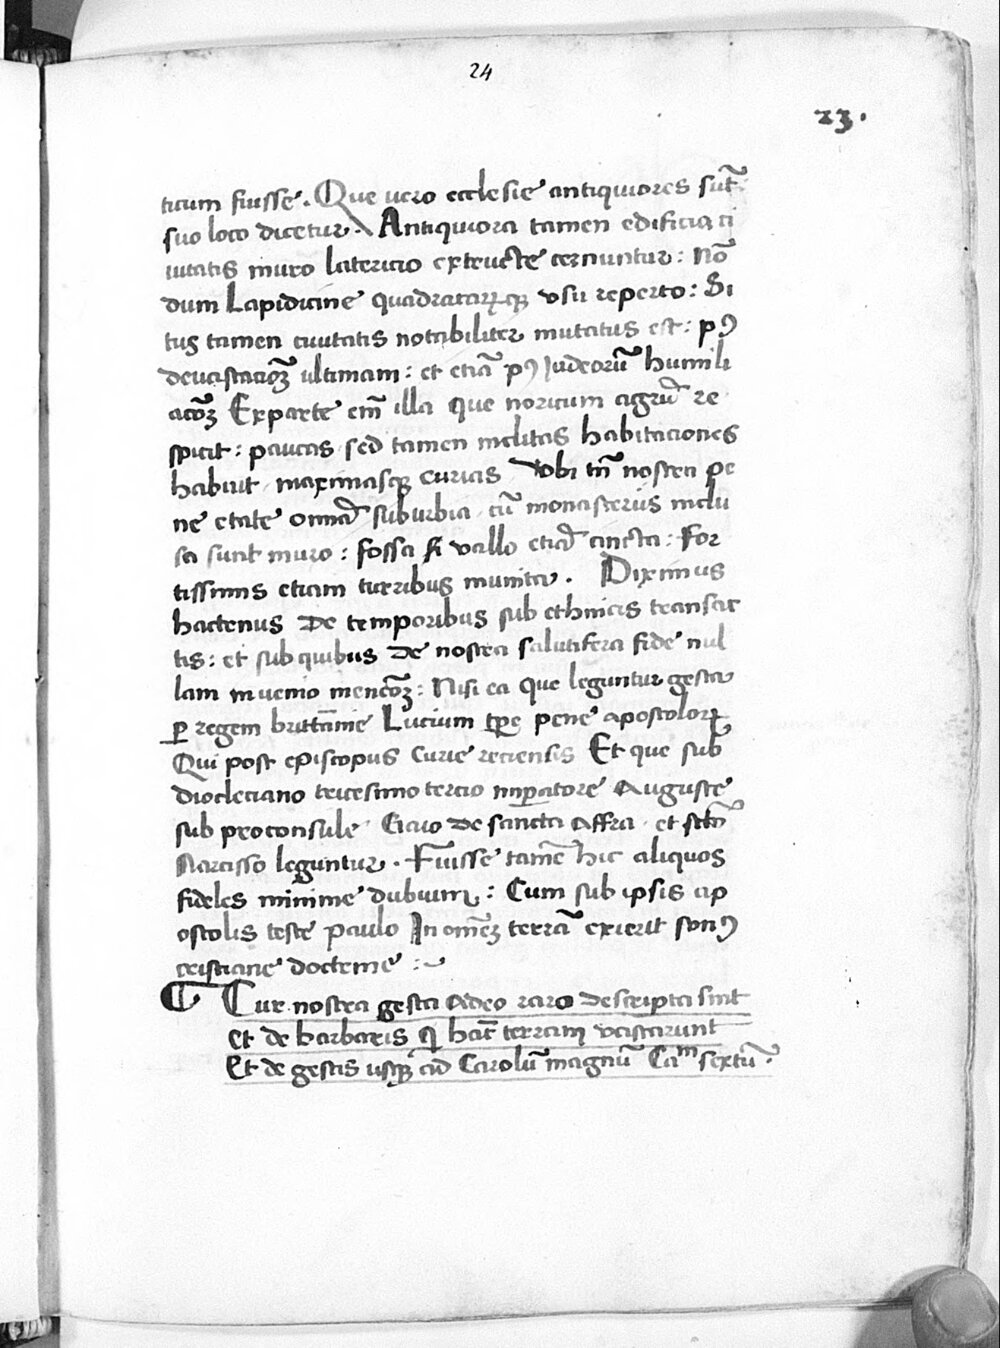 24
23.
ticum fuisse. Que uero ecclesie antiquiores sūt
suo loco dicetur. Antiquiora tamen edificia ci
iutatis muro latericio extructe cernuntur: nō
dum Lapidicine quadratarꝝqꝫ vsu reperto: Si
tus tamen ciuitatis notabiliter mutatus est: pꝰ
deuastacōꝫ ultimam: et etiā pꝰ Judeorū humili
acōꝫ Exparte em̄ illa que noricum agrū re
spicit: paucas sed tamen inclitas habitaciones
habuit maximasqꝫ curias Vbi tn̄ nostra pe
ne etate omīa suburbia cū monasteriis inclu
sa sunt muro: fossa et vallo etiā cincta: For
tissimis etiam turribus munita. Diximus
hactenus De temporibus sub ethnicis transac
tis: et sub quibus De nostra salutifera fide nul
lam inuenio mencōꝫ: Nisi ea que leguntur gesta
ꝑ regem brittanie Lucium tꝑe pene apostolorꝝ
Qui post episcopus Curie reciensis Et que sub
diocleciano tricesimo tercio imꝑatore Auguste
sub proconsule Gaio De sancta Affra et sctō
Narcisso leguntur. Fuisse tamē hic aliquos
fideles minime dubium: Cum sub ipsis ap
ostolis teste paulo In omēꝫ terrā exierit sonꝰ
cristiane doctrine :~
Cur nostra gesta Adeo raro descripta sint
et de barbaris q̄ hāc terram vastarunt
Et de gestis usqꝫ ad Carolū magnū Cam sextū.